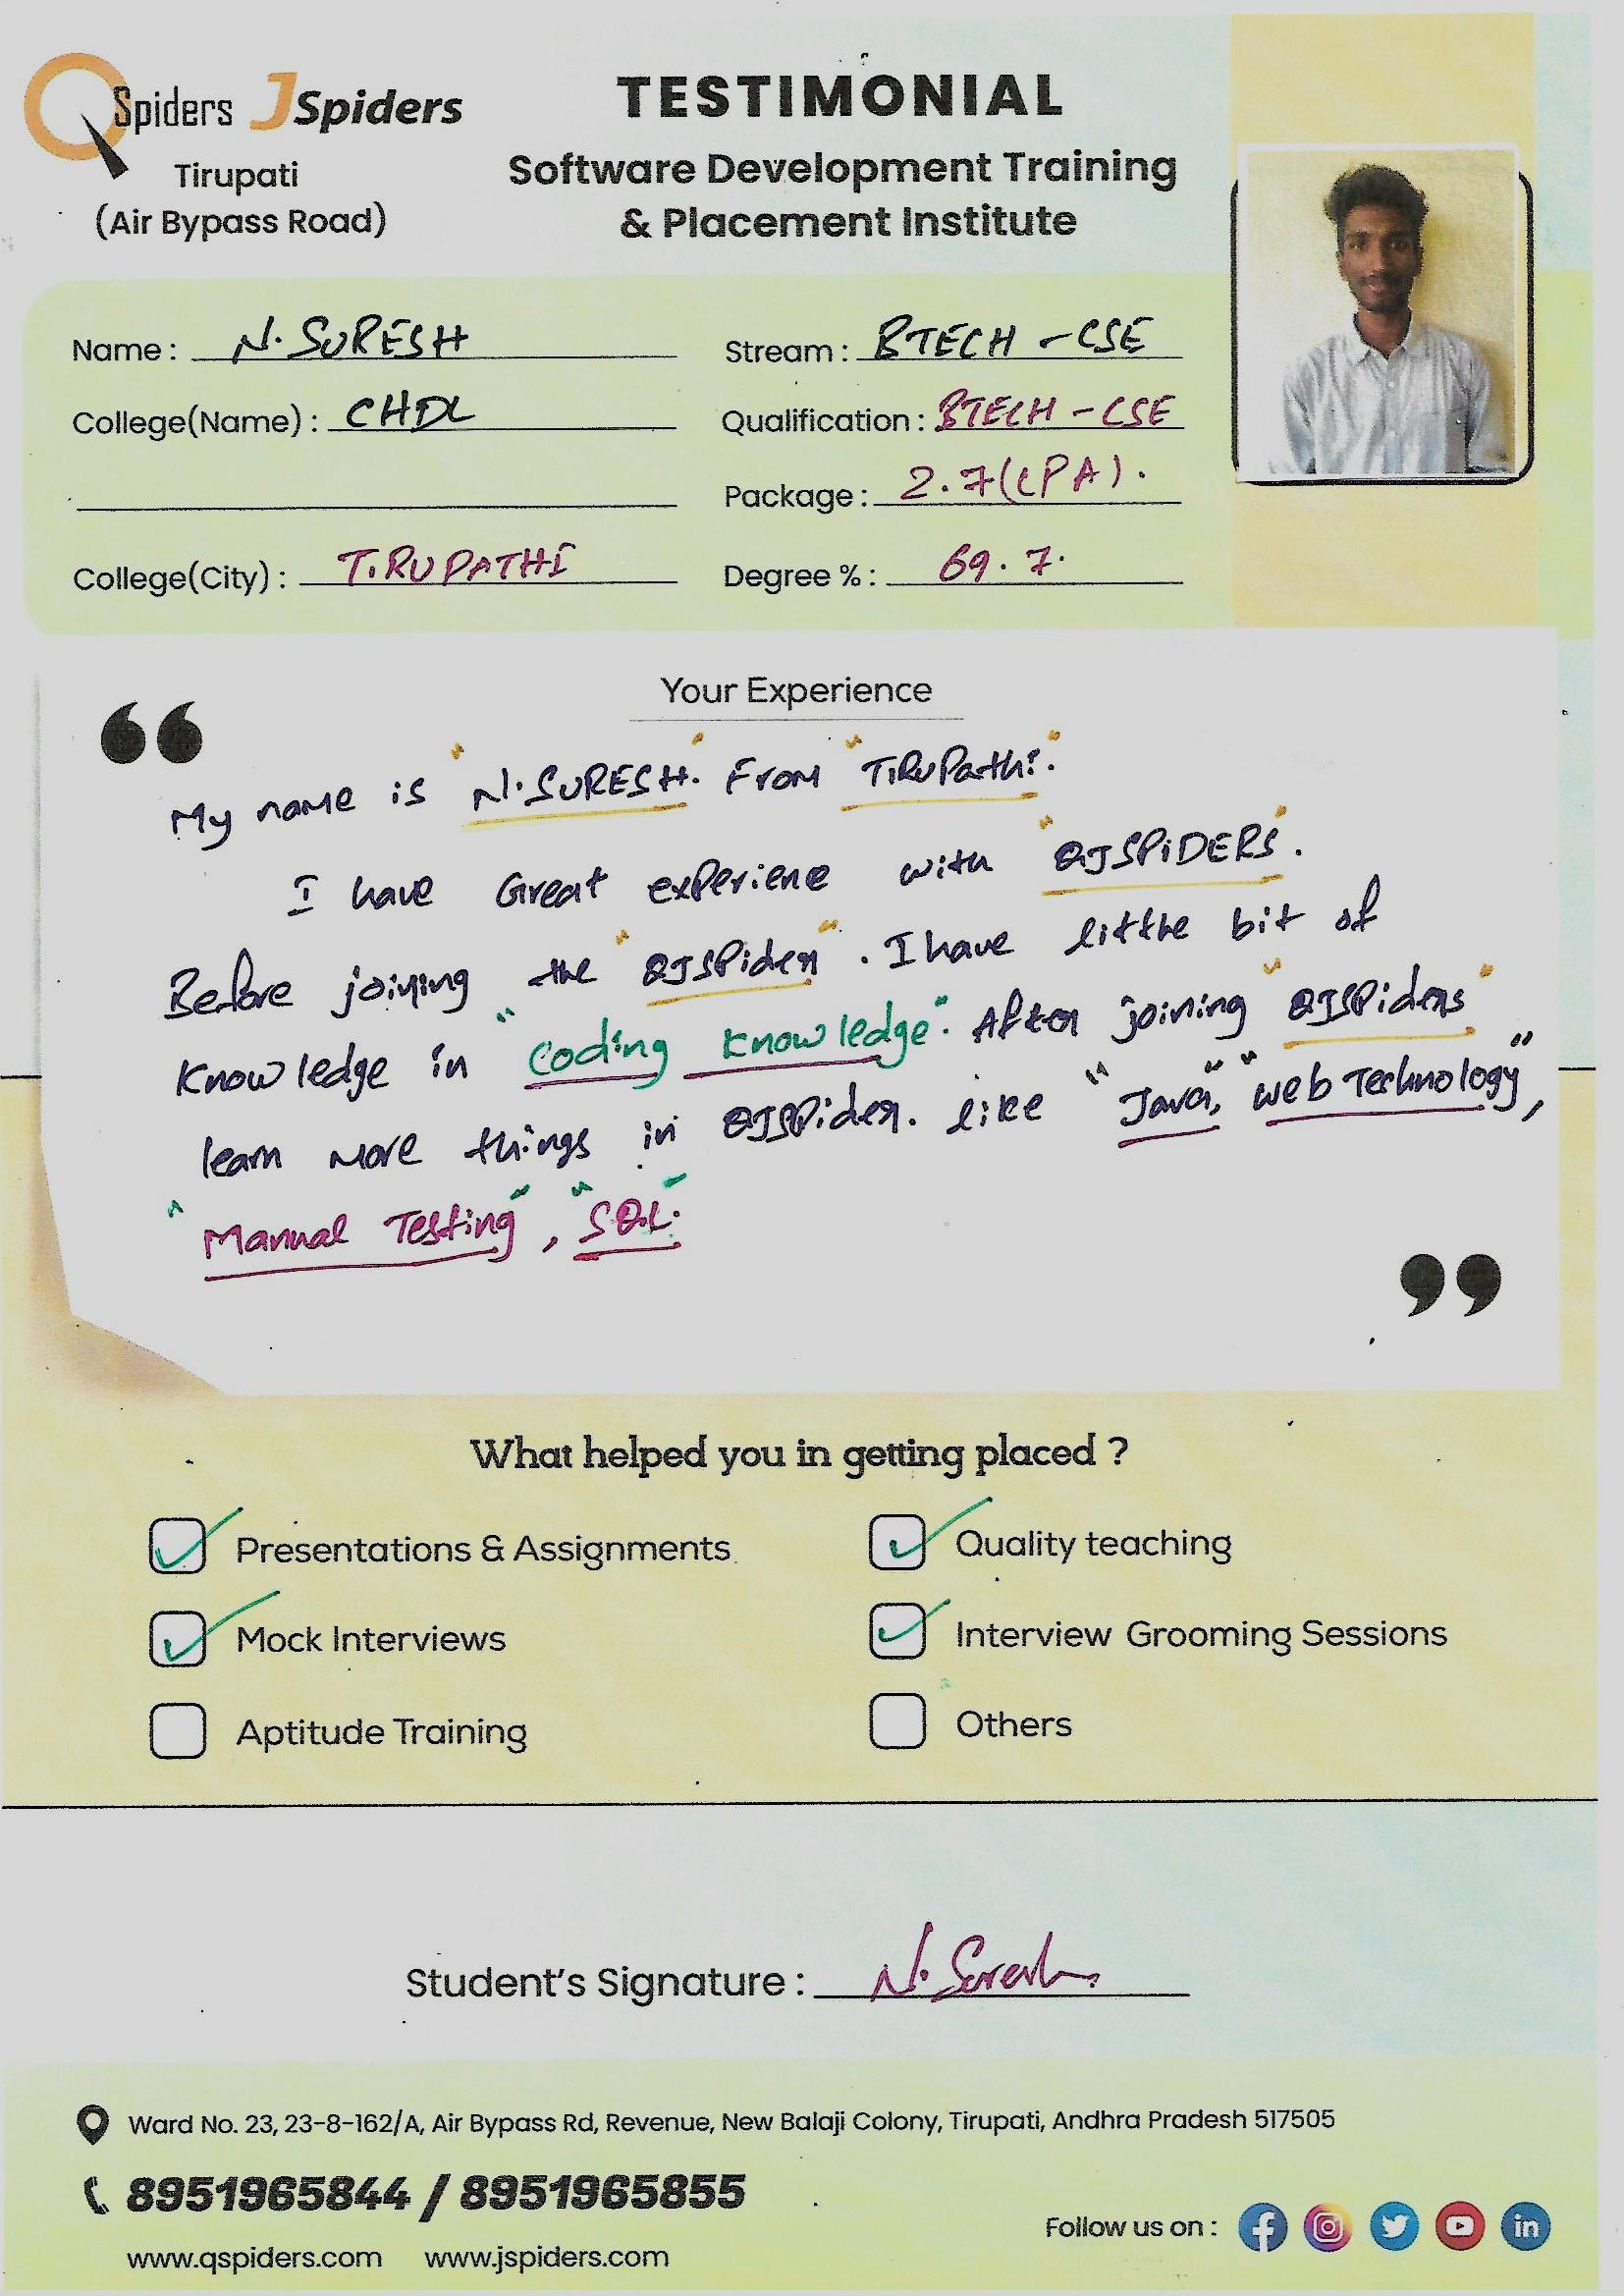 QSpiders JSpiders
Tirupati
(Air Bypass Road)
TESTIMONIAL
Software Development Training
& Placement Institute
Name : N. SURESH
Stream : BTECH - CSE
College(Name) : CHDL
Qualification : BTECH - CSE
Package : 2.7(LPA).
College(City) : TIRUPATHI
Degree % : 69.7.
Your Experience
“
My name is "N.SURESH." From "TiRuPathi".
I have Great experiene with "QJSPiDERS".
Before joining the "QJSPider". I have litthe bit of
Knowledge in "Coding Knowledge". After joining "QJSPiders"
learn More things in QJSPider. like "Java", "Web Technology",
"Manual Testing", "SQL".
”
What helped you in getting placed ?
Presentations & Assignments
Quality teaching
Mock Interviews
Interview Grooming Sessions
Aptitude Training
Others
Student's Signature : N. Suresh.
Ward No. 23, 23-8-162/A, Air Bypass Rd, Revenue, New Balaji Colony, Tirupati, Andhra Pradesh 517505
8951965844 / 8951965855
Follow us on :
www.qspiders.com www.jspiders.com